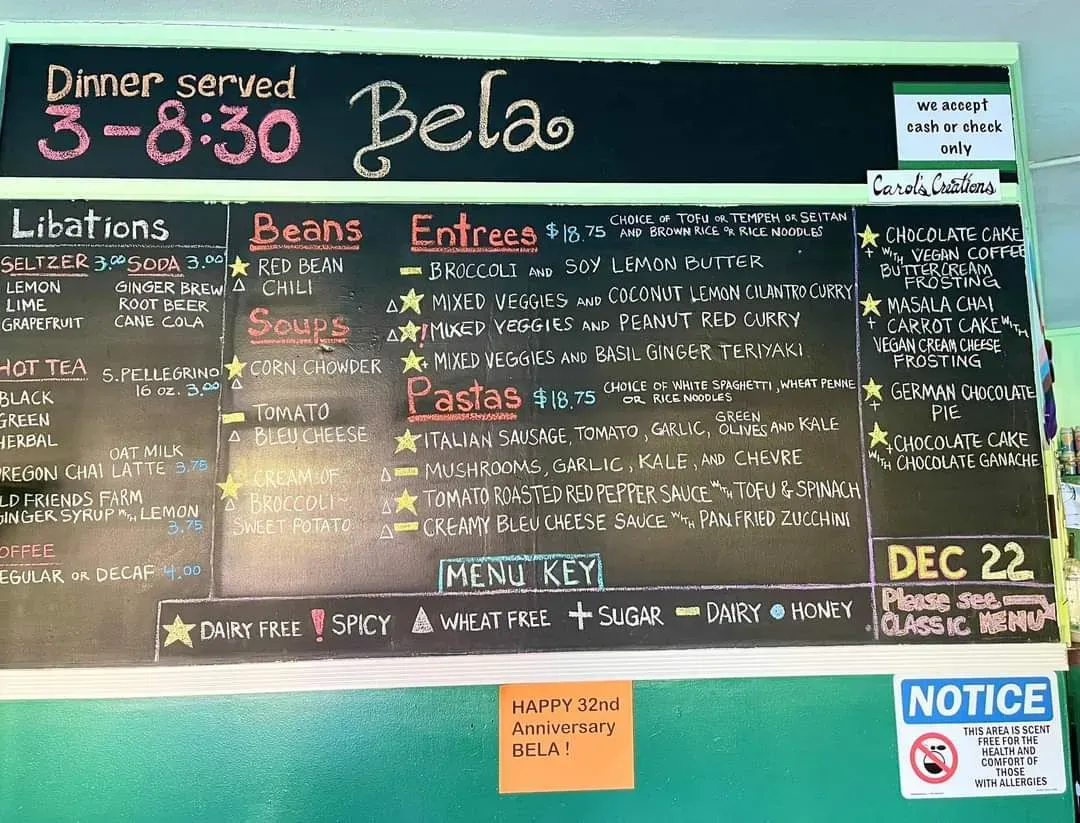 Dinner served
3-8:30
Bela
we accept
cash or check
only
Carol's Creations
Libations
SELTZER 3.00 SODA 3.00
LEMON
LIME
GRAPEFRUIT
GINGER BREW
ROOT BEER
CANE COLA
HOT TEA
BLACK
GREEN
HERBAL
S.PELLEGRINO
16 OZ. 3.00
OAT MILK
OREGON CHAI LATTE 3.75
OLD FRIENDS FARM
GINGER SYRUP WITH LEMON
3.75
COFFEE
REGULAR OR DECAF 4.00
Beans
RED BEAN
CHILI
Soups
CORN CHOWDER
TOMATO
BLEU CHEESE
CREAM OF
BROCCOLI~
SWEET POTATO
Entrees $18.75 CHOICE OF TOFU OR TEMPEH OR SEITAN
AND BROWN RICE OR RICE NOODLES
BROCCOLI AND SOY LEMON BUTTER
MIXED VEGGIES AND COCONUT LEMON CILANTRO CURRY
! MIXED VEGGIES AND PEANUT RED CURRY
+ MIXED VEGGIES AND BASIL GINGER TERIYAKI
Pastas $18.75 CHOICE OF WHITE SPAGHETTI, WHEAT PENNE
OR RICE NOODLES
ITALIAN SAUSAGE, TOMATO, GARLIC, GREEN OLIVES AND KALE
MUSHROOMS, GARLIC, KALE, AND CHEVRE
TOMATO ROASTED RED PEPPER SAUCE WITH TOFU & SPINACH
CREAMY BLEU CHEESE SAUCE WITH PAN FRIED ZUCCHINI
CHOCOLATE CAKE
+ WITH VEGAN COFFEE
BUTTERCREAM
FROSTING
MASALA CHAI
+ CARROT CAKE WITH
VEGAN CREAM CHEESE
FROSTING
GERMAN CHOCOLATE
+ PIE
+ CHOCOLATE CAKE
WITH CHOCOLATE GANACHE
DEC 22
Please see
CLASSIC MENU
MENU KEY
DAIRY FREE ! SPICY WHEAT FREE + SUGAR DAIRY HONEY
HAPPY 32nd
Anniversary
BELA !
NOTICE
THIS AREA IS SCENT
FREE FOR THE
HEALTH AND
COMFORT OF
THOSE
WITH ALLERGIES